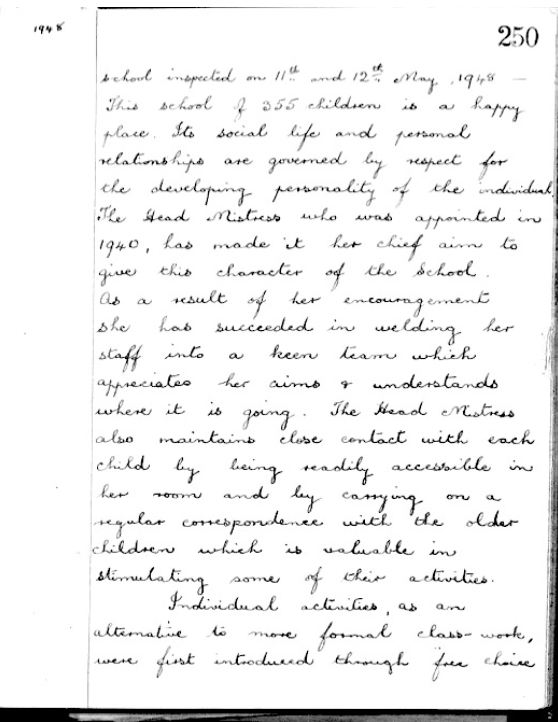 1948
250
School inspected on 11th and 12th May, 1948 —
This school of 355 children is a happy
place. Its social life and personal
relationships are governed by respect for
the developing personality of the individual.
The Head Mistress who was appointed in
1940, has made it her chief aim to
give this character of the School.
As a result of her encouragement
she has succeeded in welding her
staff into a keen team which
appreciates her aims & understands
where it is going. The Head Mistress
also maintains close contact with each
child by being readily accessible in
her room and by carrying on a
regular correspondence with the older
children which is valuable in
stimulating some of their activities.
Individual activities, as an
alternative to more formal class-work,
were first introduced through free choice